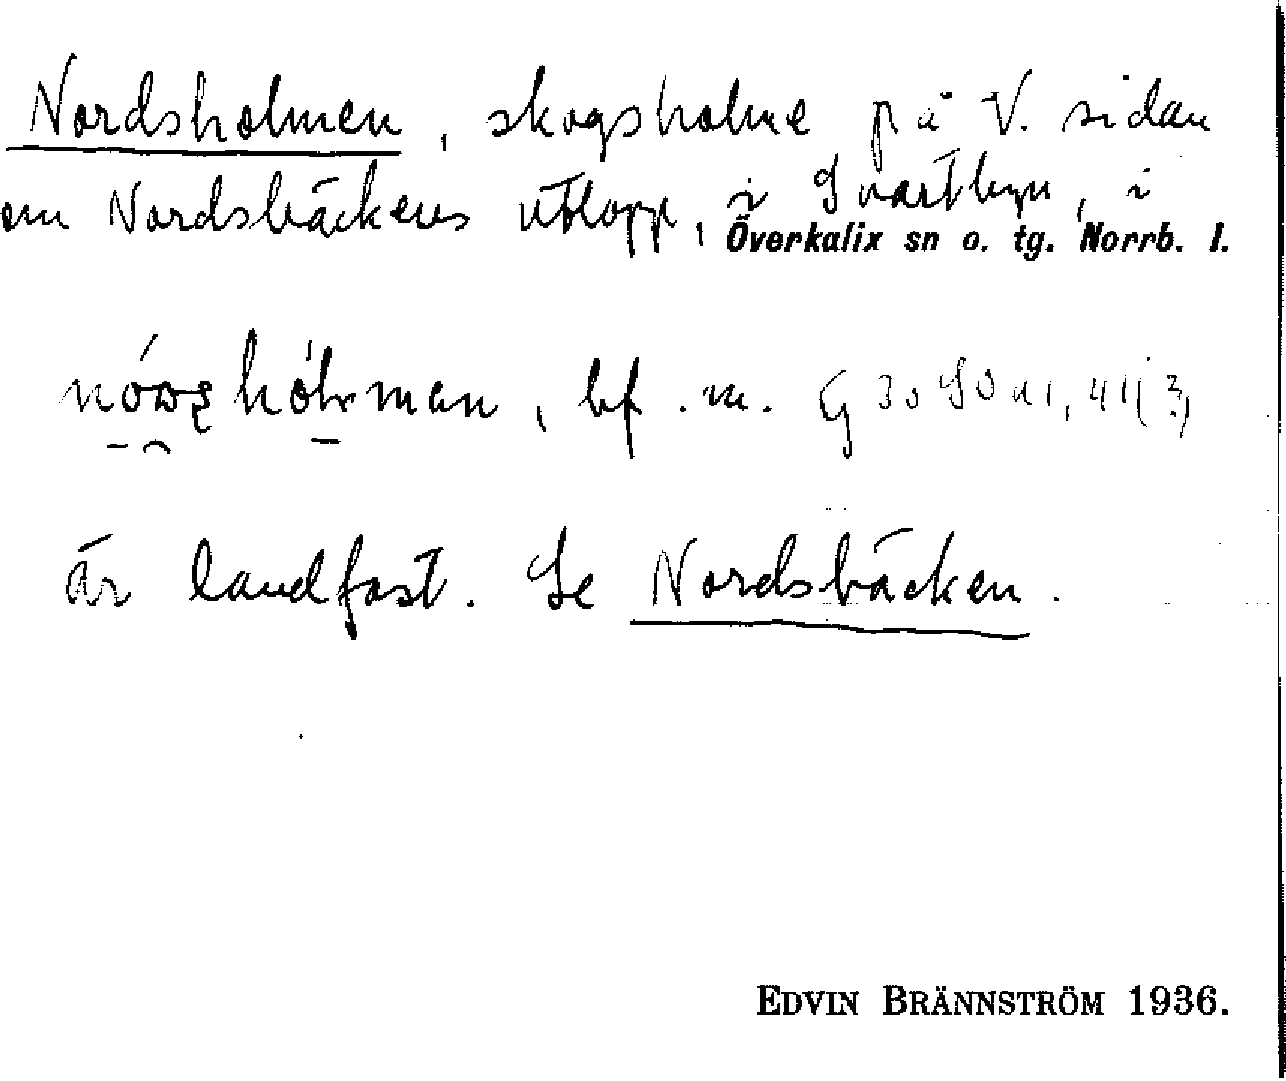 Nordsholmen, skogsholme på V. sidan
om Nordsbäckens utlopp, i Svartbyn, i
Överkalix sn o. tg. Norrb. l.
bf. m. G
är landfast. Se Nordsbäcken.
EDVIN BRÄNNSTRÖM 1936.